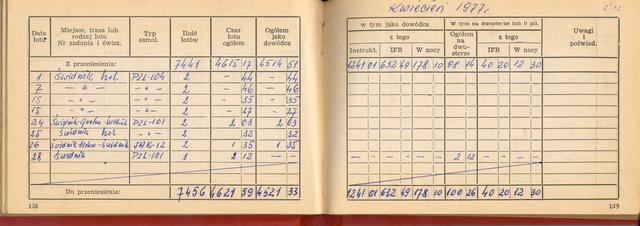 Kwiecień 1977r
Data lotu Miejsce, trasa lub rodzaj lotu Nr zadania i ćwicz. Typ samol. Ilość lotów Czas lotu ogółem Ogółem jako dowódca
w tym jako dowódca W tym na dwusterze lub II pil. Uwagi i poświad.
z tego Ogółem na dwusterze z tego
Instrukt. IFR W nocy IFR W nocy
Z przeniesienia: 7441 4615 17 4514 51 1241 01 632 49 178 10 98 14 40 20 12 30
1 Świdnik hol PZL-104 2 - 44 - 44
7 - „ - - „ - 2 - 46 - 46
15 - „ - - „ - 2 - 35 - 35
15 - „ - - „ - 2 - 27 - 27
24 PZL-101 2 2 03 2 03
25 Świdnik hol - „ - 2 32 32
26 JAK-12 2 1 35 1 35
28 Świdnik PZL-101 1 2 12 - - - - - - - - 2 12 - - - -
Do przeniesienia: 7456 4621 59 4521 33 1241 01 632 49 178 10 100 26 40 20 12 30
138
139